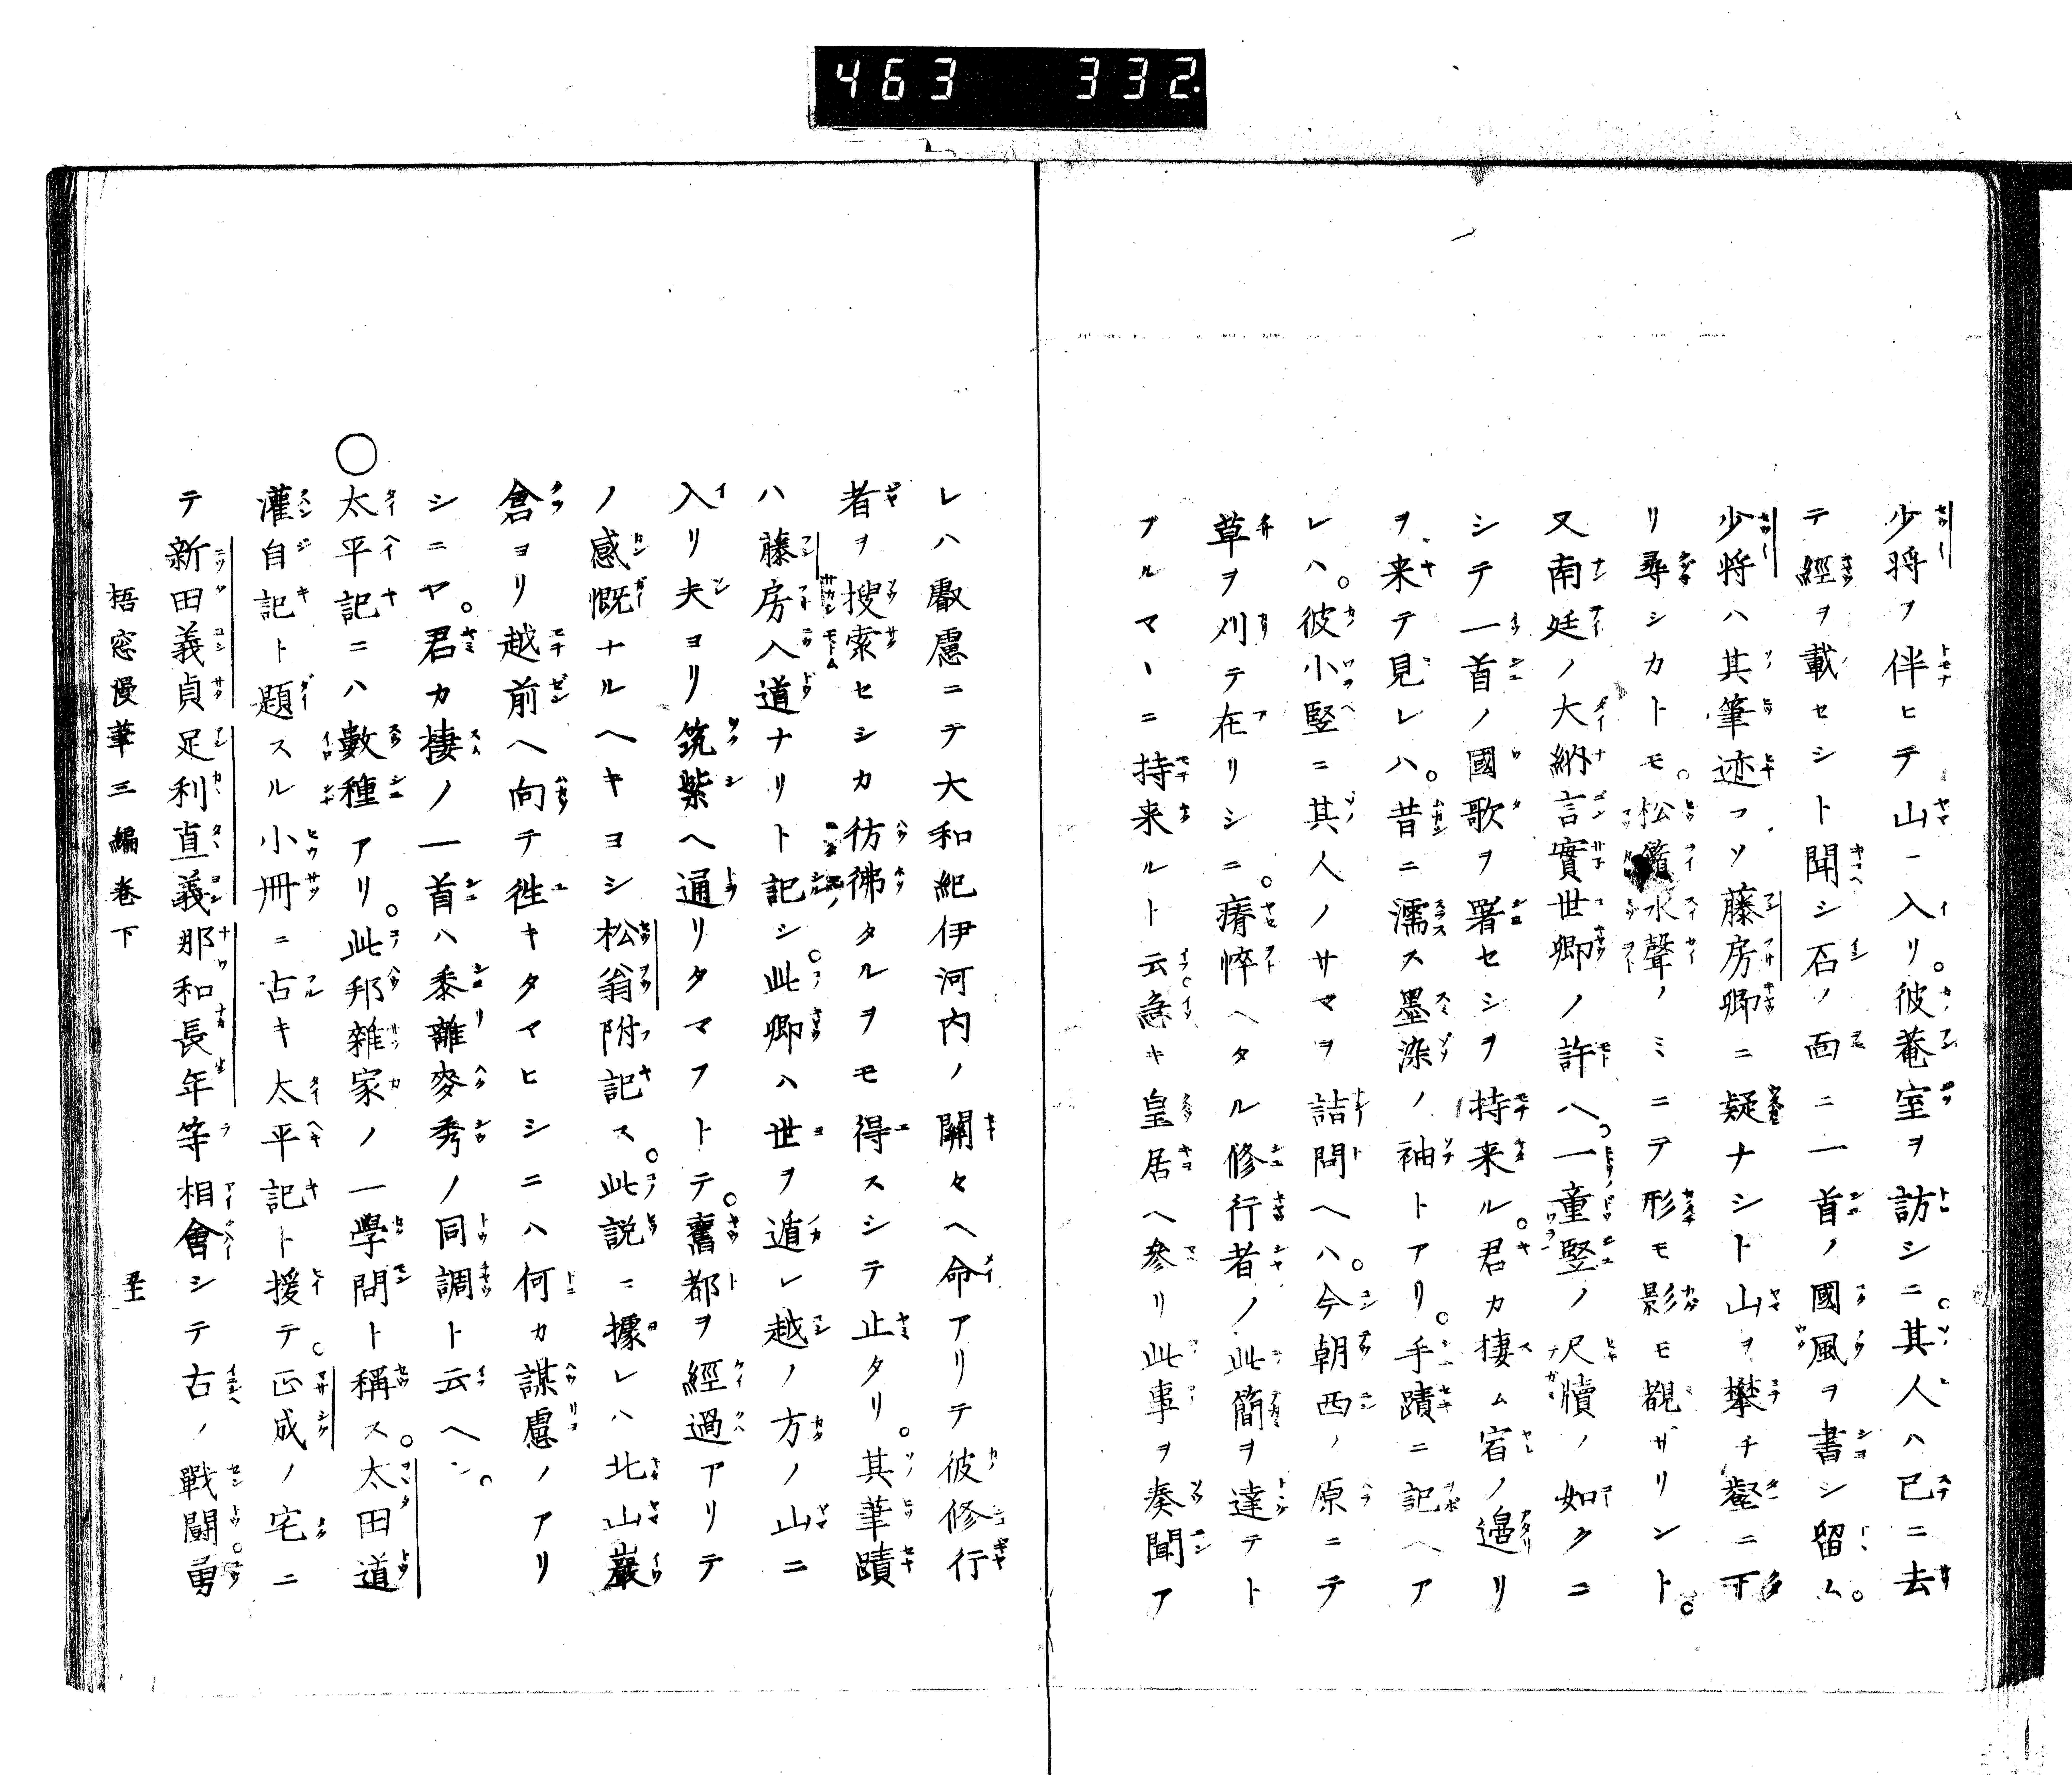 463 332
少将ヲ伴ヒテ山ニ入リ。彼菴室ヲ訪シニ。其人ハ已ニ去
テ經ヲ載セシト聞シ石ノ面ニ一首ノ國風ヲ書シ留ム。
少将ハ其筆迹コソ藤房卿ニ疑ナシト山ヲ攀チ壑ニ下
リ尋シカトモ。松籟水聲ノミニテ形モ影モ覩ザリント。
又南廷ノ大納言實世卿ノ許ヘ。一童竪ノ尺牘ノ如クニ
シテ一首ノ國歌ヲ署セシヲ持来ル。君カ棲ム宿ノ邉リ
ヲ来テ見レハ。昔ニ濡ス墨染ノ袖トアリ。手蹟ニ記ヘア
レハ。彼小竪ニ其人ノサマヲ詰問ヘハ。今朝西ノ原ニテ
草ヲ刈テ在リシニ。瘠悴ヘタル修行者ノ此簡ヲ達テト
フルマヽニ持来ルト云。急キ皇居ヘ參リ此事ヲ奏聞ア
レハ叡慮ニテ大和紀伊河内ノ關々ヘ命アリテ彼修行
者ヲ搜索セシカ彷彿タルヲモ得スシテ止タリ。其筆蹟
ハ藤房入道ナリト記シ。此卿ハ世ヲ遁レ越ノ方ノ山ニ
入リ夫ヨリ筑紫ヘ通リタマフトテ。舊都ヲ經過アリテ
ノ感慨ナルヘキヨシ松翁附記ス。此説ニ據レハ北山巖
倉ヨリ越前ヘ向テ徃キタマヒシニハ何カ謀慮ノアリ
シニヤ。君カ棲ノ一首ハ黍離麥秀ノ同調ト云ヘン。
○太平記ニハ數種アリ。此邦雜家ノ一學問ト稱ス。太田道
灌自記ト題スル小冊ニ古キ太平記ト援テ。正成ノ宅ニ
テ新田義貞足利直義那和長年等相會シテ古ノ戰鬪。勇
梧窓漫筆三編巻下